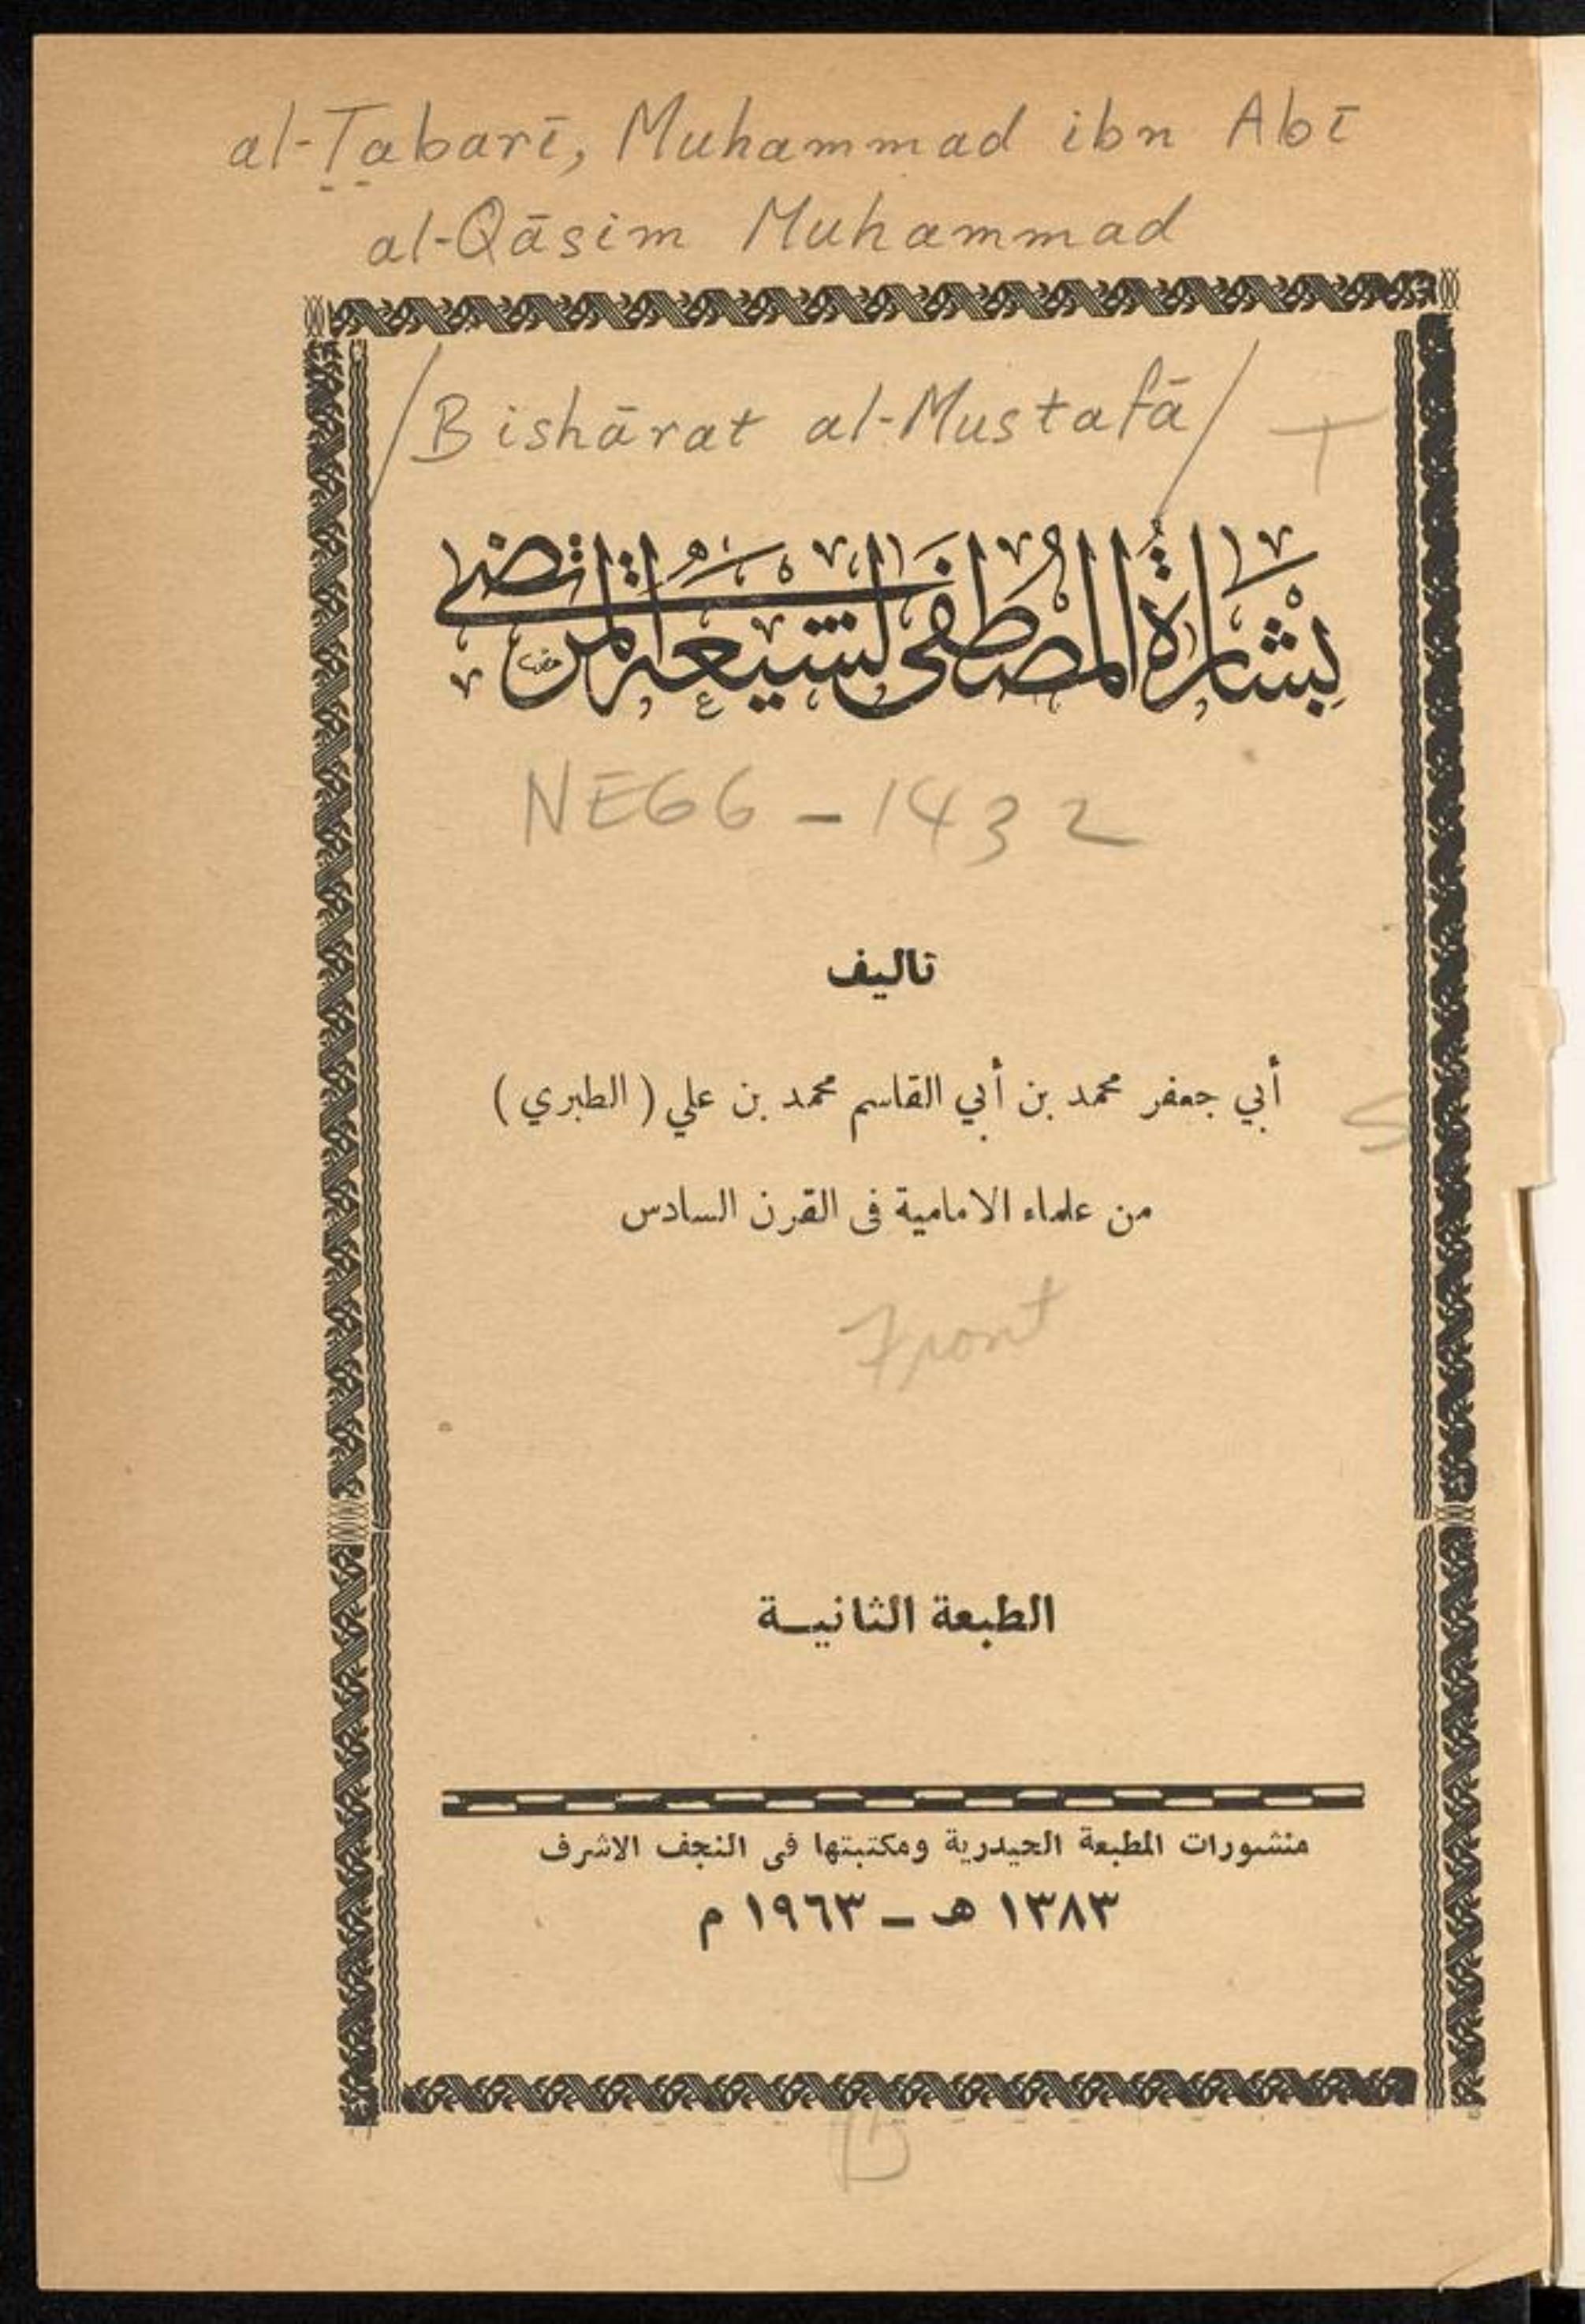 al-Ṭabarī, Muhammad ibn Abī
al-Qāsim Muhammad
/Bishārat al-Mustafā/
بشارة المصطفى لشيعة المرتضى
NE66 - 1432
تاليف
أبي جعفر محمد بن أبي القاسم محمد بن علي ( الطبري )
من علماء الامامية فى القرن السادس
Front
الطبعة الثانيـة
منشورات المطبعة الحيدرية ومكتبتها فى النجف الاشرف
١٣٨٣ هـ ــ ١٩٦٣ م